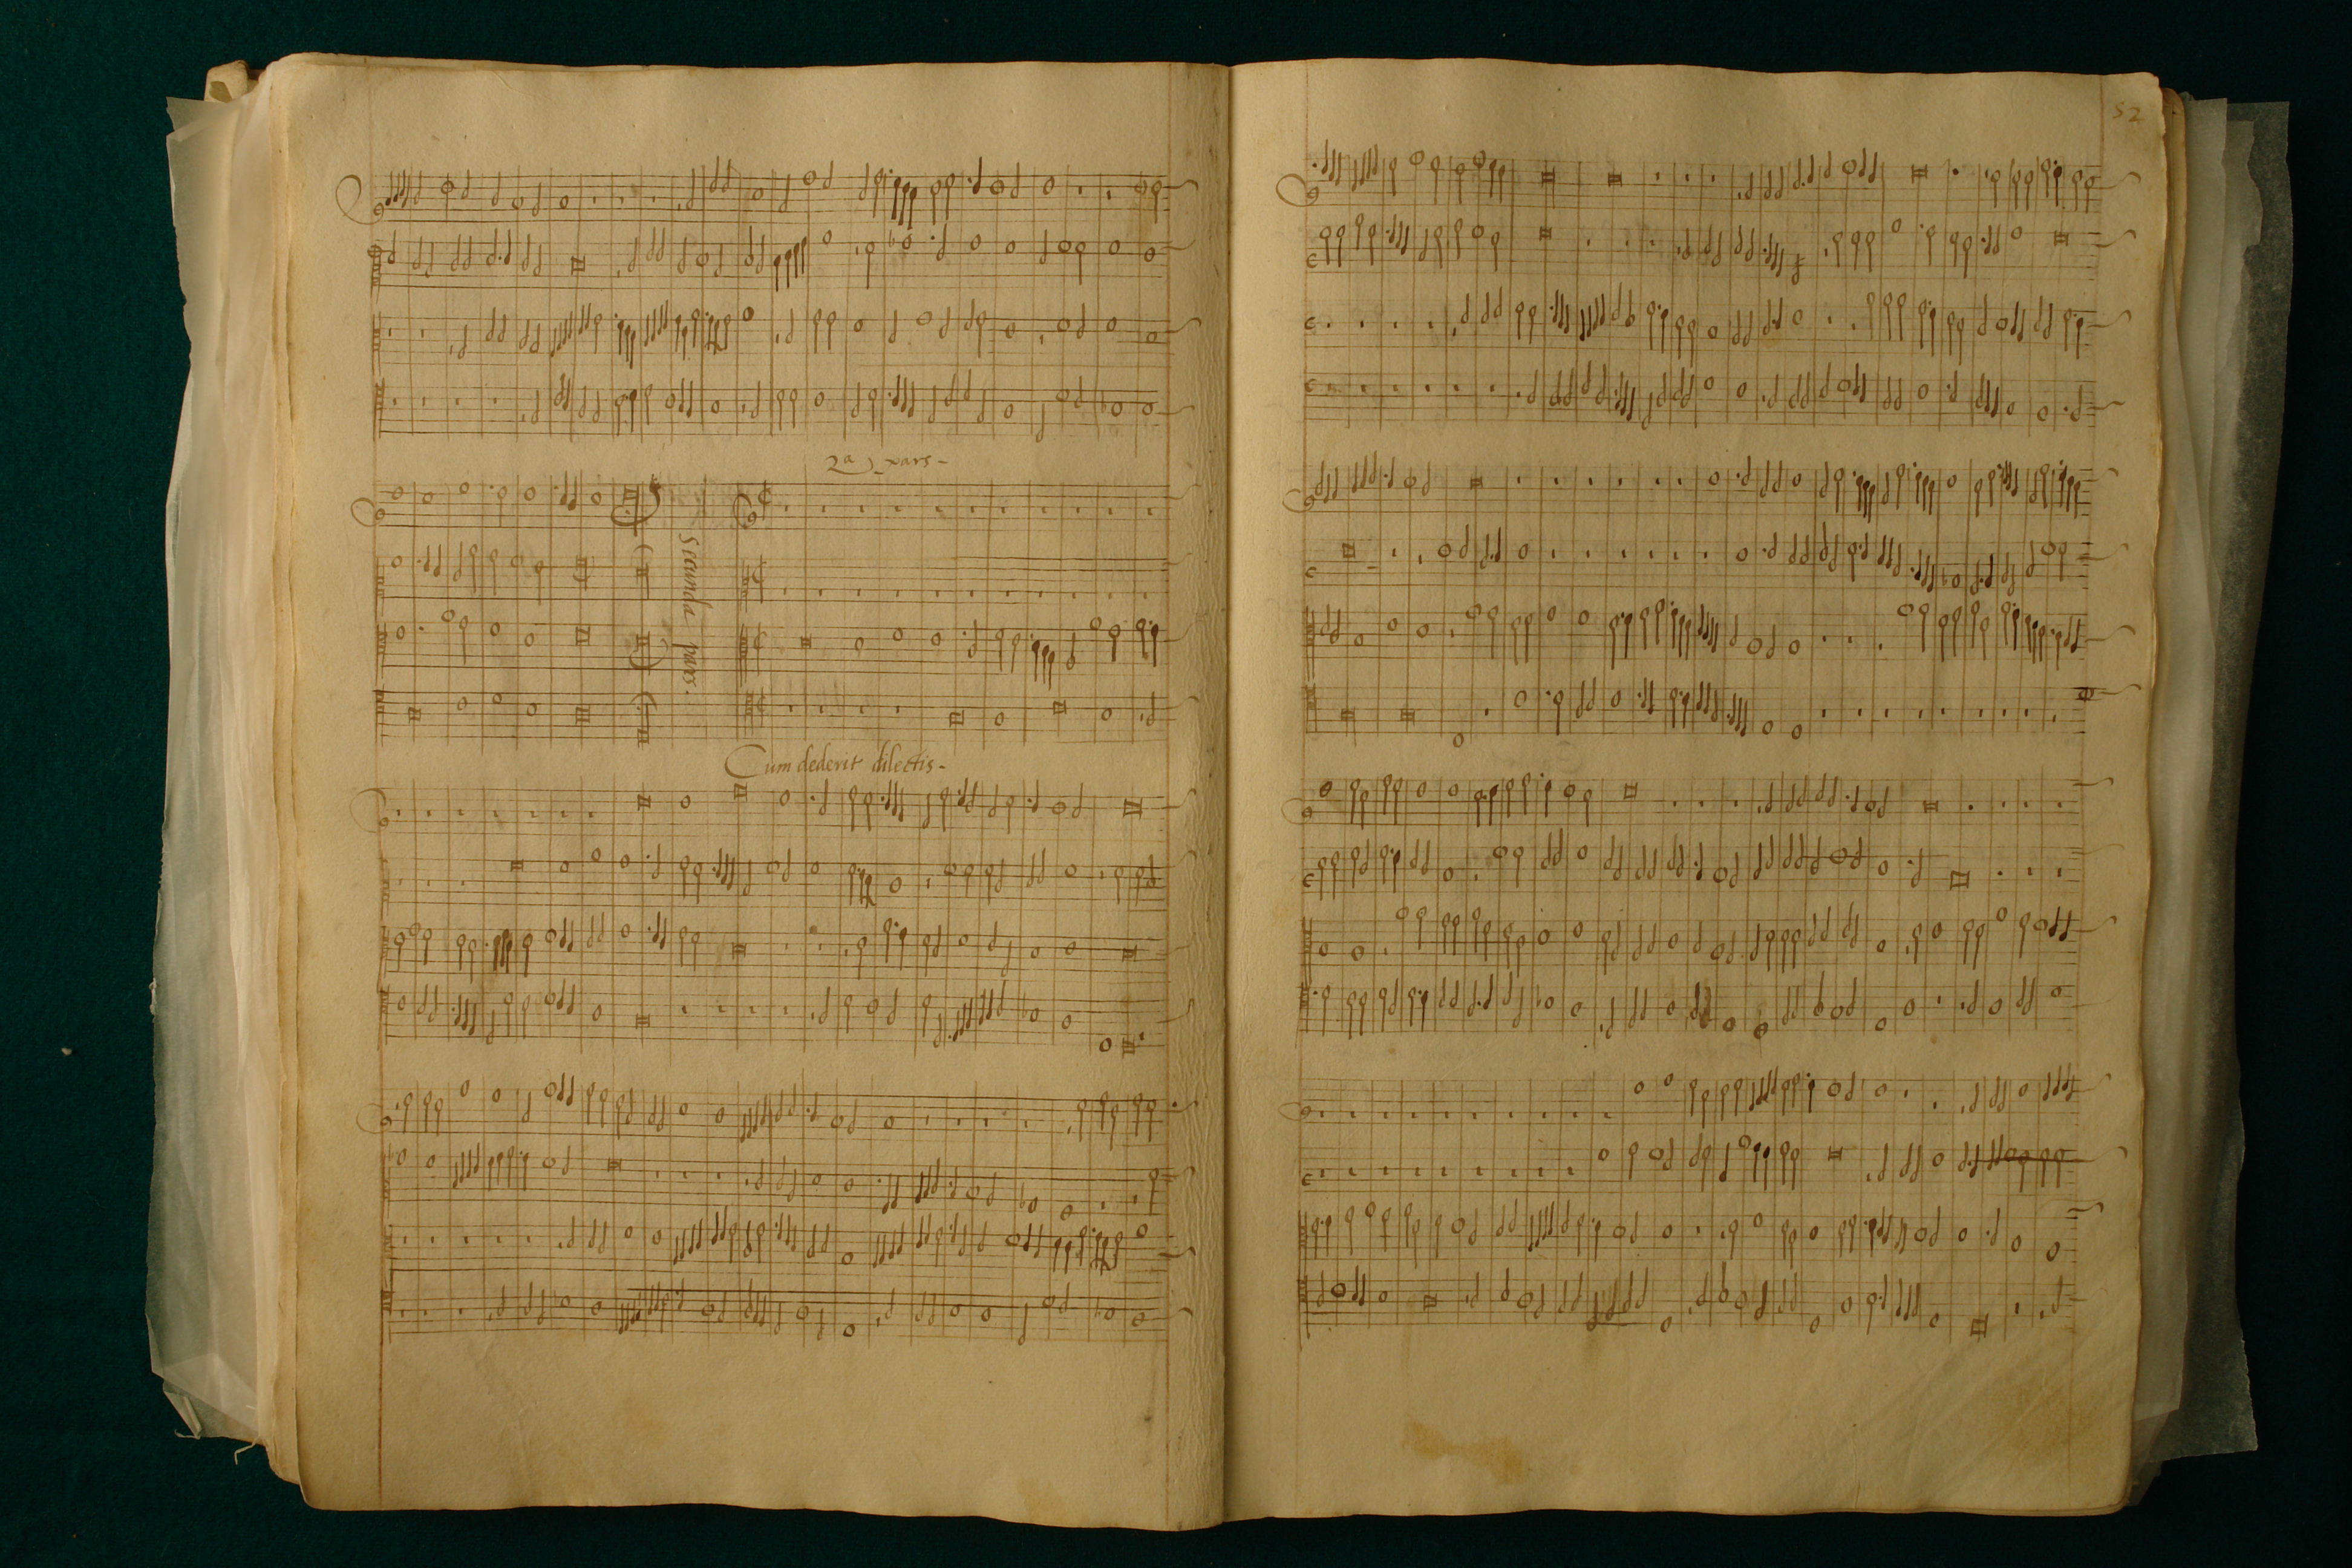 52
2a pars -
Secunda pars.
Cum dederit dilectis -